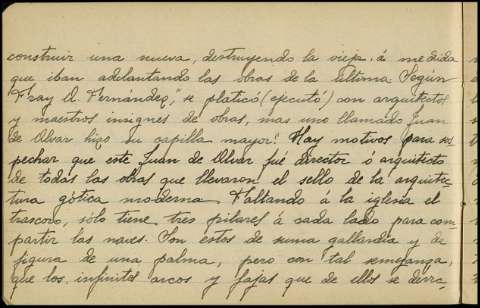 construir una nueva, destruyendo la vieja á medida
que iban adelantando las obras de la última. Según
Fray A. Fernández, "se platicó (ejecutó) con arquitectos
y maestros insignes de obras, mas uno llamado Juan
de Alvar hizo su capilla mayor". Hay motivos para sos
pechar que este Juan de Alvar fué director ó arquitecto
de todas las obras que llevaron el sello de la arquitec-
tura gótica moderna. Faltando á la iglesia el
trascoro, sólo tiene tres pilares á cada lado para com-
partir las naves. Son estos de suma gallardía y de
figura de una palma, pero con tal semejanza,
que los infinitos arcos y fajas que de ellos se derra-